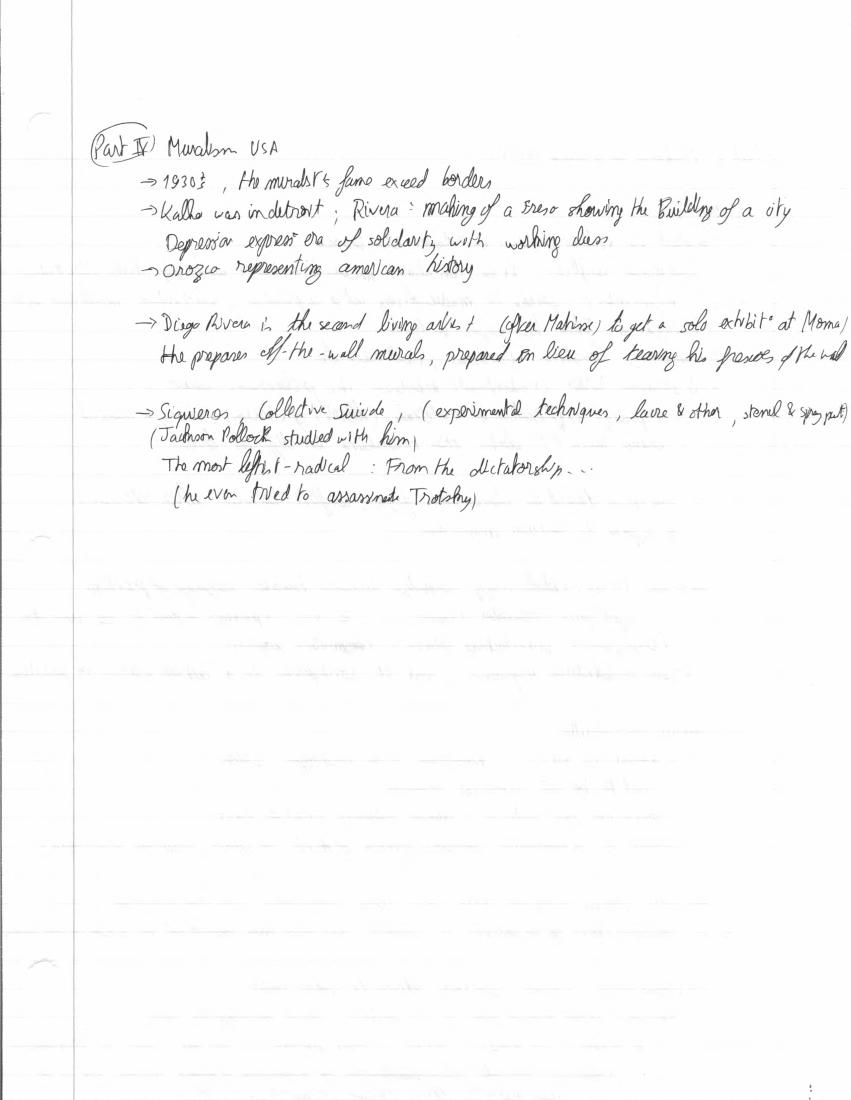 Part IV) Muralism USA
→ 1930s, the muralist's fame exceed borders
→ Kalho was in detroit ; Rivera : making of a fresco showing the Building of a city
Depression express era of solidarity with working class
→ Orozco representing american history
→ Diego Rivera is the second living artist (after Matisse) to get a solo exhibit° at Moma/
He prepares off-the-wall murals, prepared in lieu of tearing his frescoes of the wall
→ Siquieros, Collective Suicide, (experimental techniques, & other, stencil & spray paint)
(Jackson Pollock studied with him)
The most leftist-radical : From the dictatorship...
(he even tried to assassinate Trotsky)